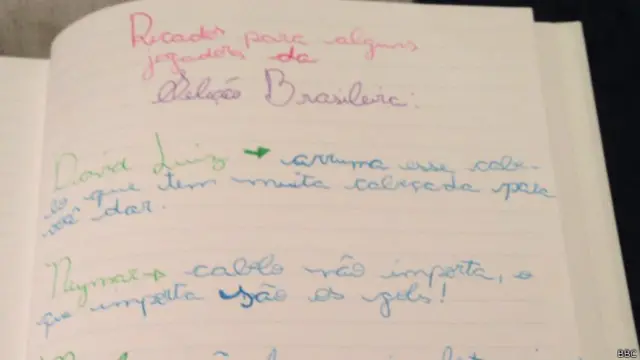 Recados para alguns
jogadores da
Seleção Brasileira:
David Luiz → arruma esse cabe-
lo que tem muita cabeçada para
você dar.
Neymar → cabelo não importa, o
que importa são os gols!
BBC